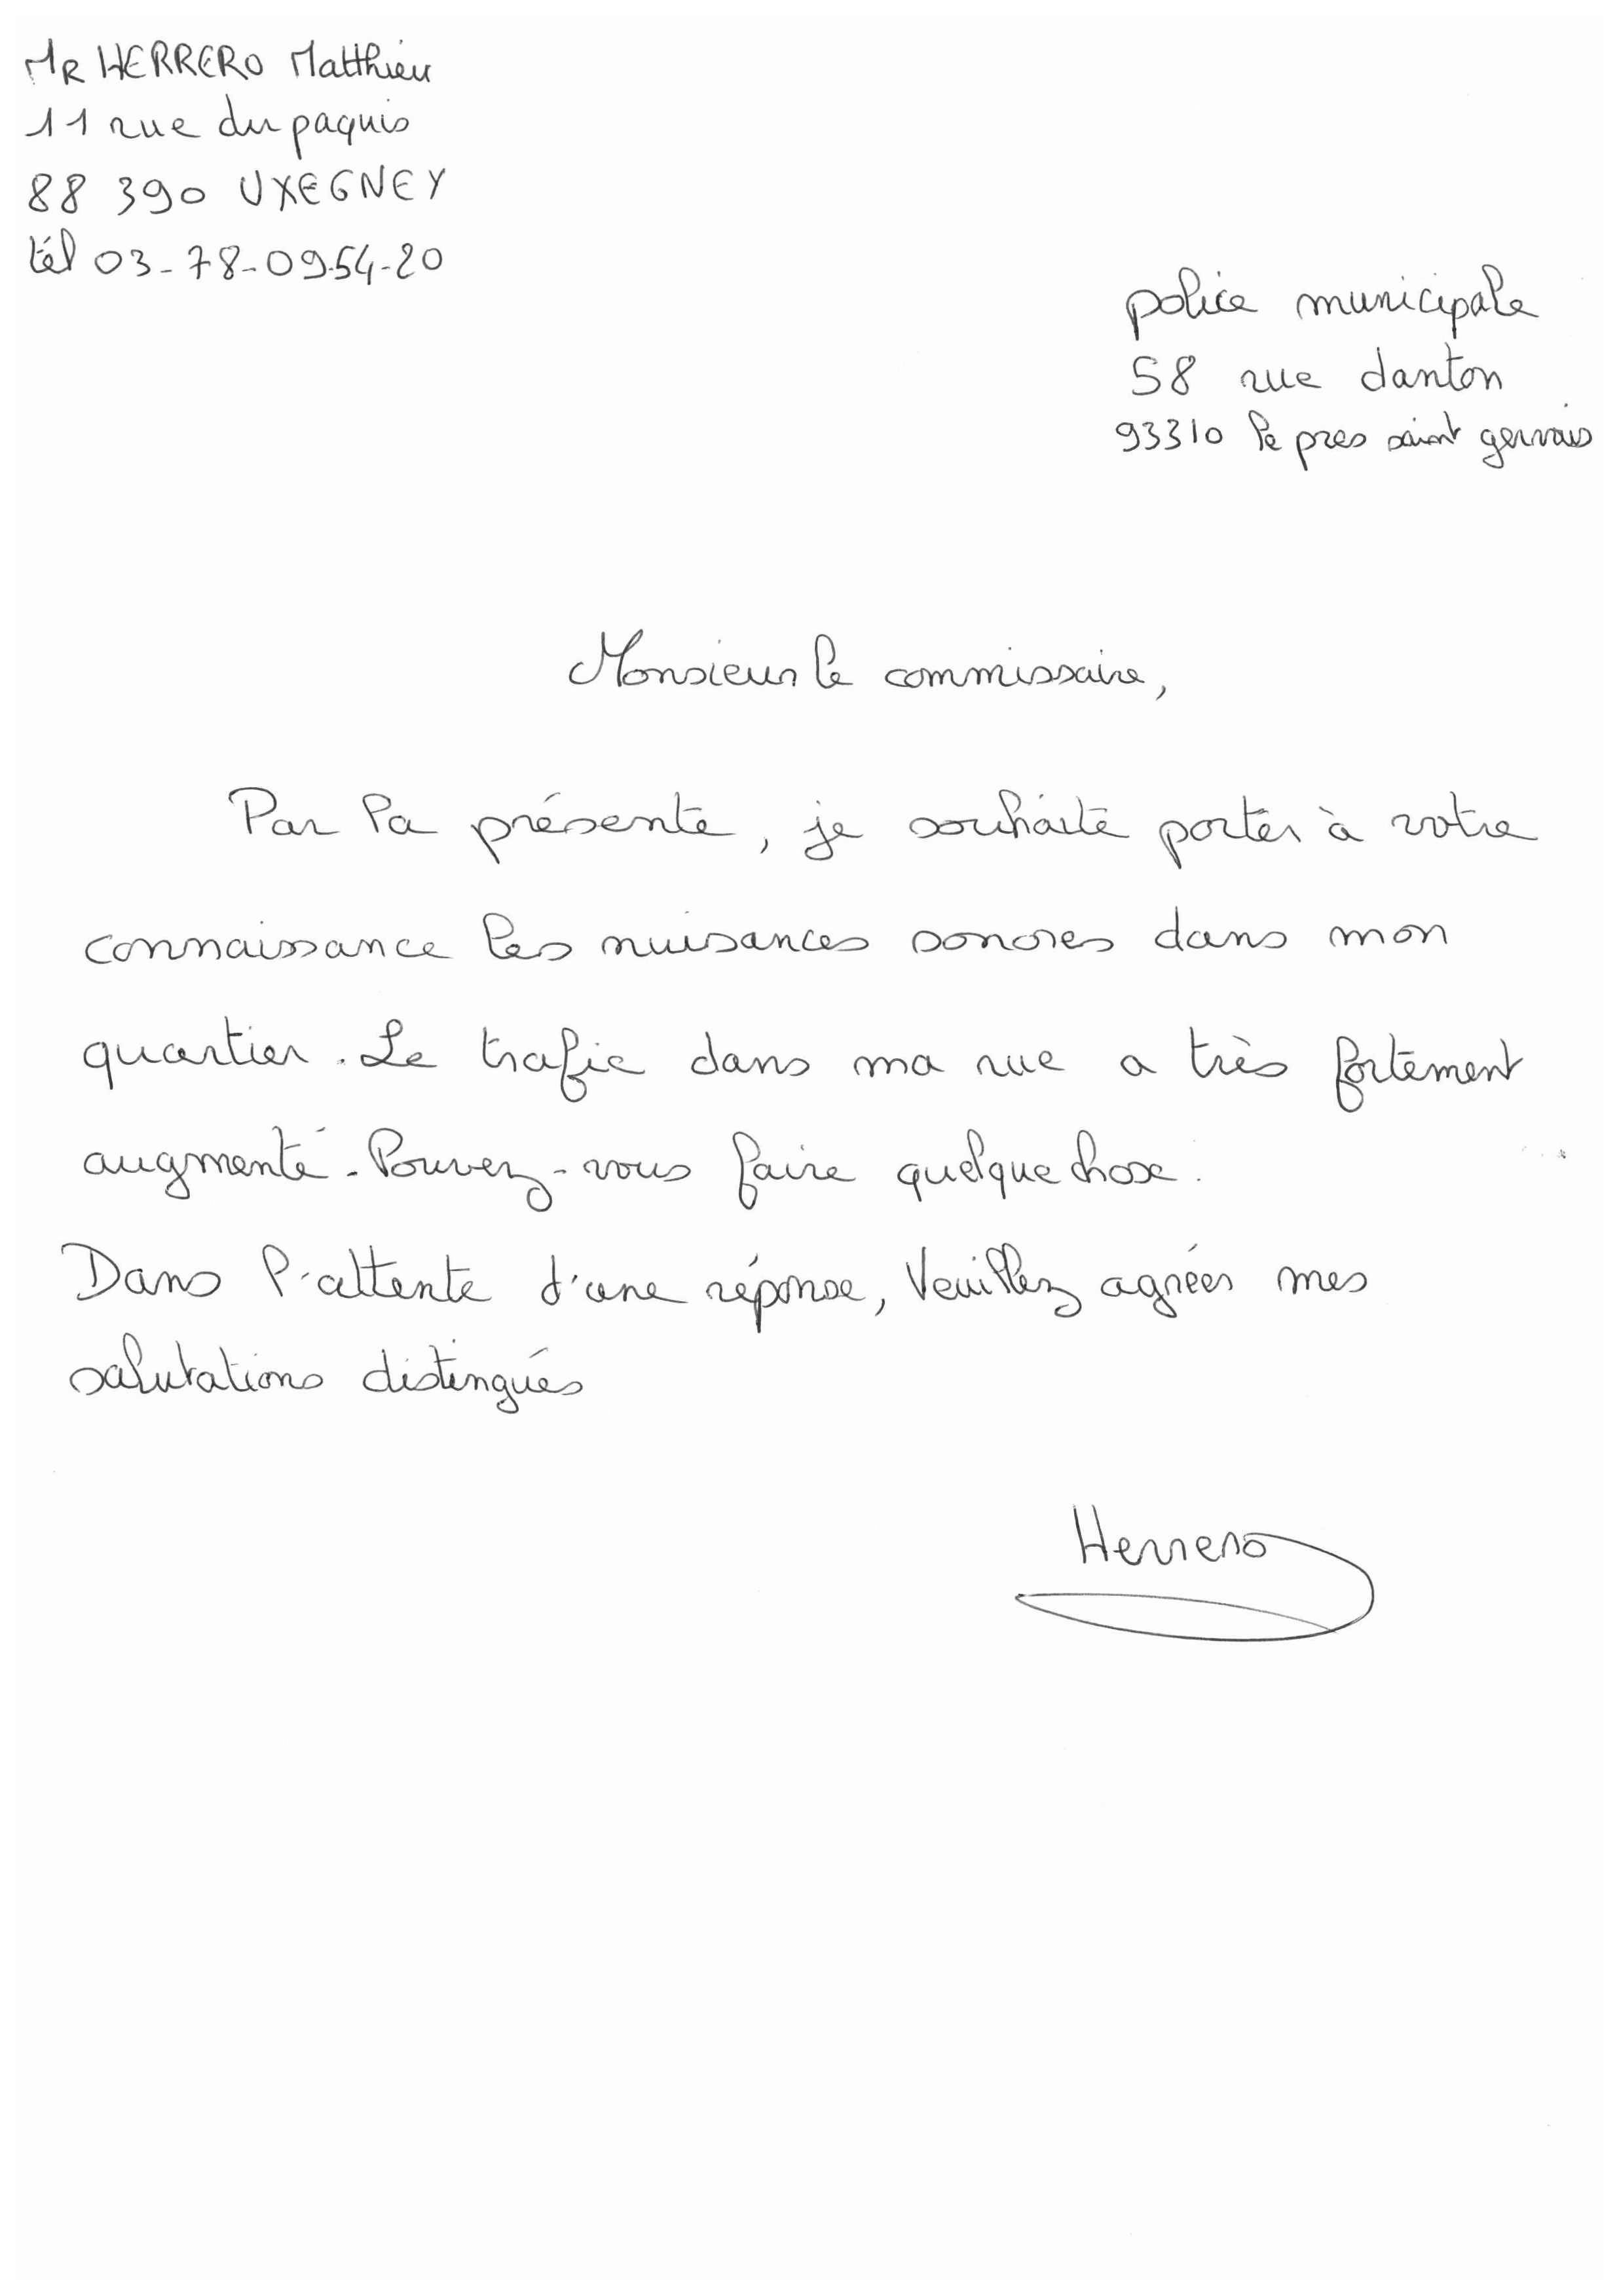 MR HERRERO Matthieu
11 rue du paquis
88 390 UXEGNEY
tél 03-78-09-54-20
police municipale
58 rue danton
93310 le pres saint gervais
Monsieur le commissaire,
Par la présente, je souhaite porter à votre
connaissance les nuisances sonores dans mon
quartier. Le trafic dans ma rue a très fortement
augmenté. Pouvez-vous faire quelque chose.
Dans l'attente d'une réponse, Veuillez agréer mes
salutations distingués
Herrero